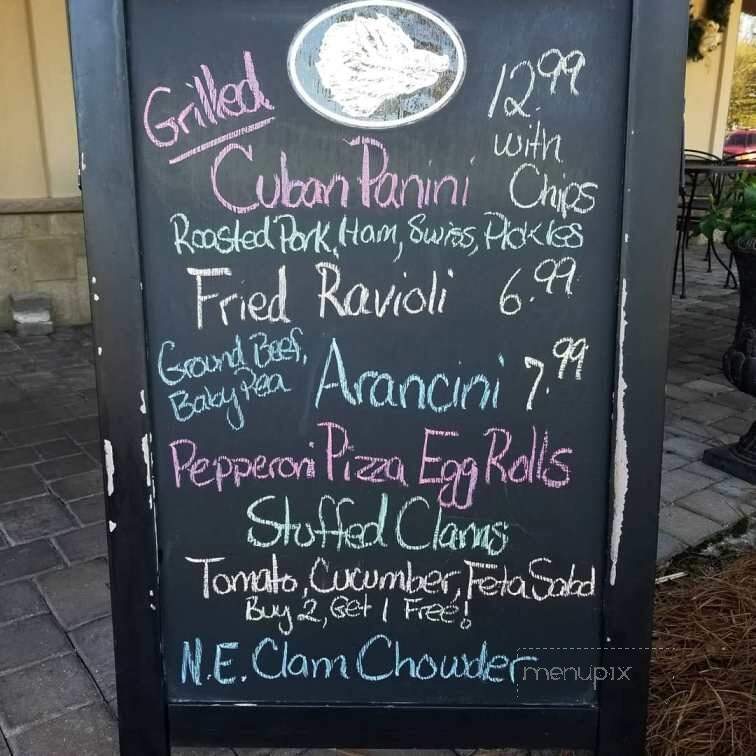 Grilled 12.99
Cuban Panini with Chips
Roasted Pork, Ham, Swiss, Pickles
Fried Ravioli 6.99
Ground Beef,
Baby Pea Arancini 7.99
Pepperoni Pizza Egg Rolls
Stuffed Clams
Tomato, Cucumber, Feta Salad
Buy 2, Get 1 Free!
N.E. Clam Chowder
menupix